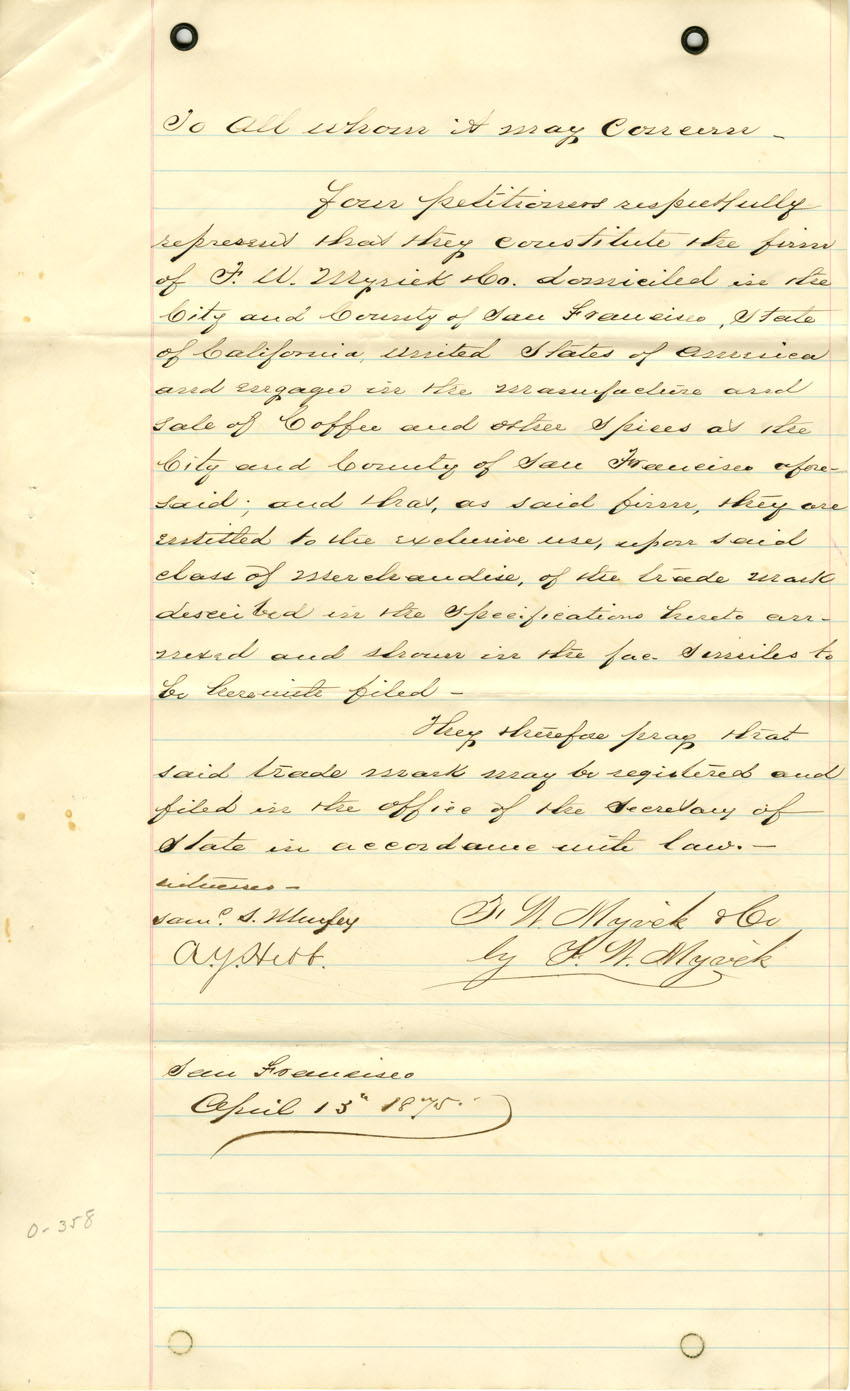 To all whom it may Concern –
Your petitioners respectfully
represent that they constitute the firm
of F. W. Myrick & Co. domiciled in the
City and County of San Francisco, State
of California, United States of America
and engaged in the manufacture and
sale of Coffee and other Spices at the
City and County of San Francisco afore-
said; and that, as said firm, they are
entitled to the exclusive use, upon said
class of Merchandise, of the trade mark
described in the Specifications hereto an-
nexed and shown in the fac-Similes to
be herewith filed –
They therefore pray that
said trade mark may be registered and
filed in the office of the Secretary of
State in accordance with law. –
witnesses –
Saml. S. Murfey
A. J. Hebb.
F. W. Myrick & Co
by F. W. Myrick
San Francisco
April 13th 1875.
0-358